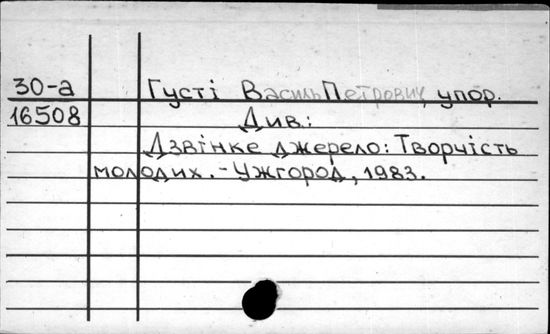 30-а Густі Василь Петрович, упор.
16508 Див.:
Дзвінке джерело: Творчість
молодих. - Ужгород, 1983.